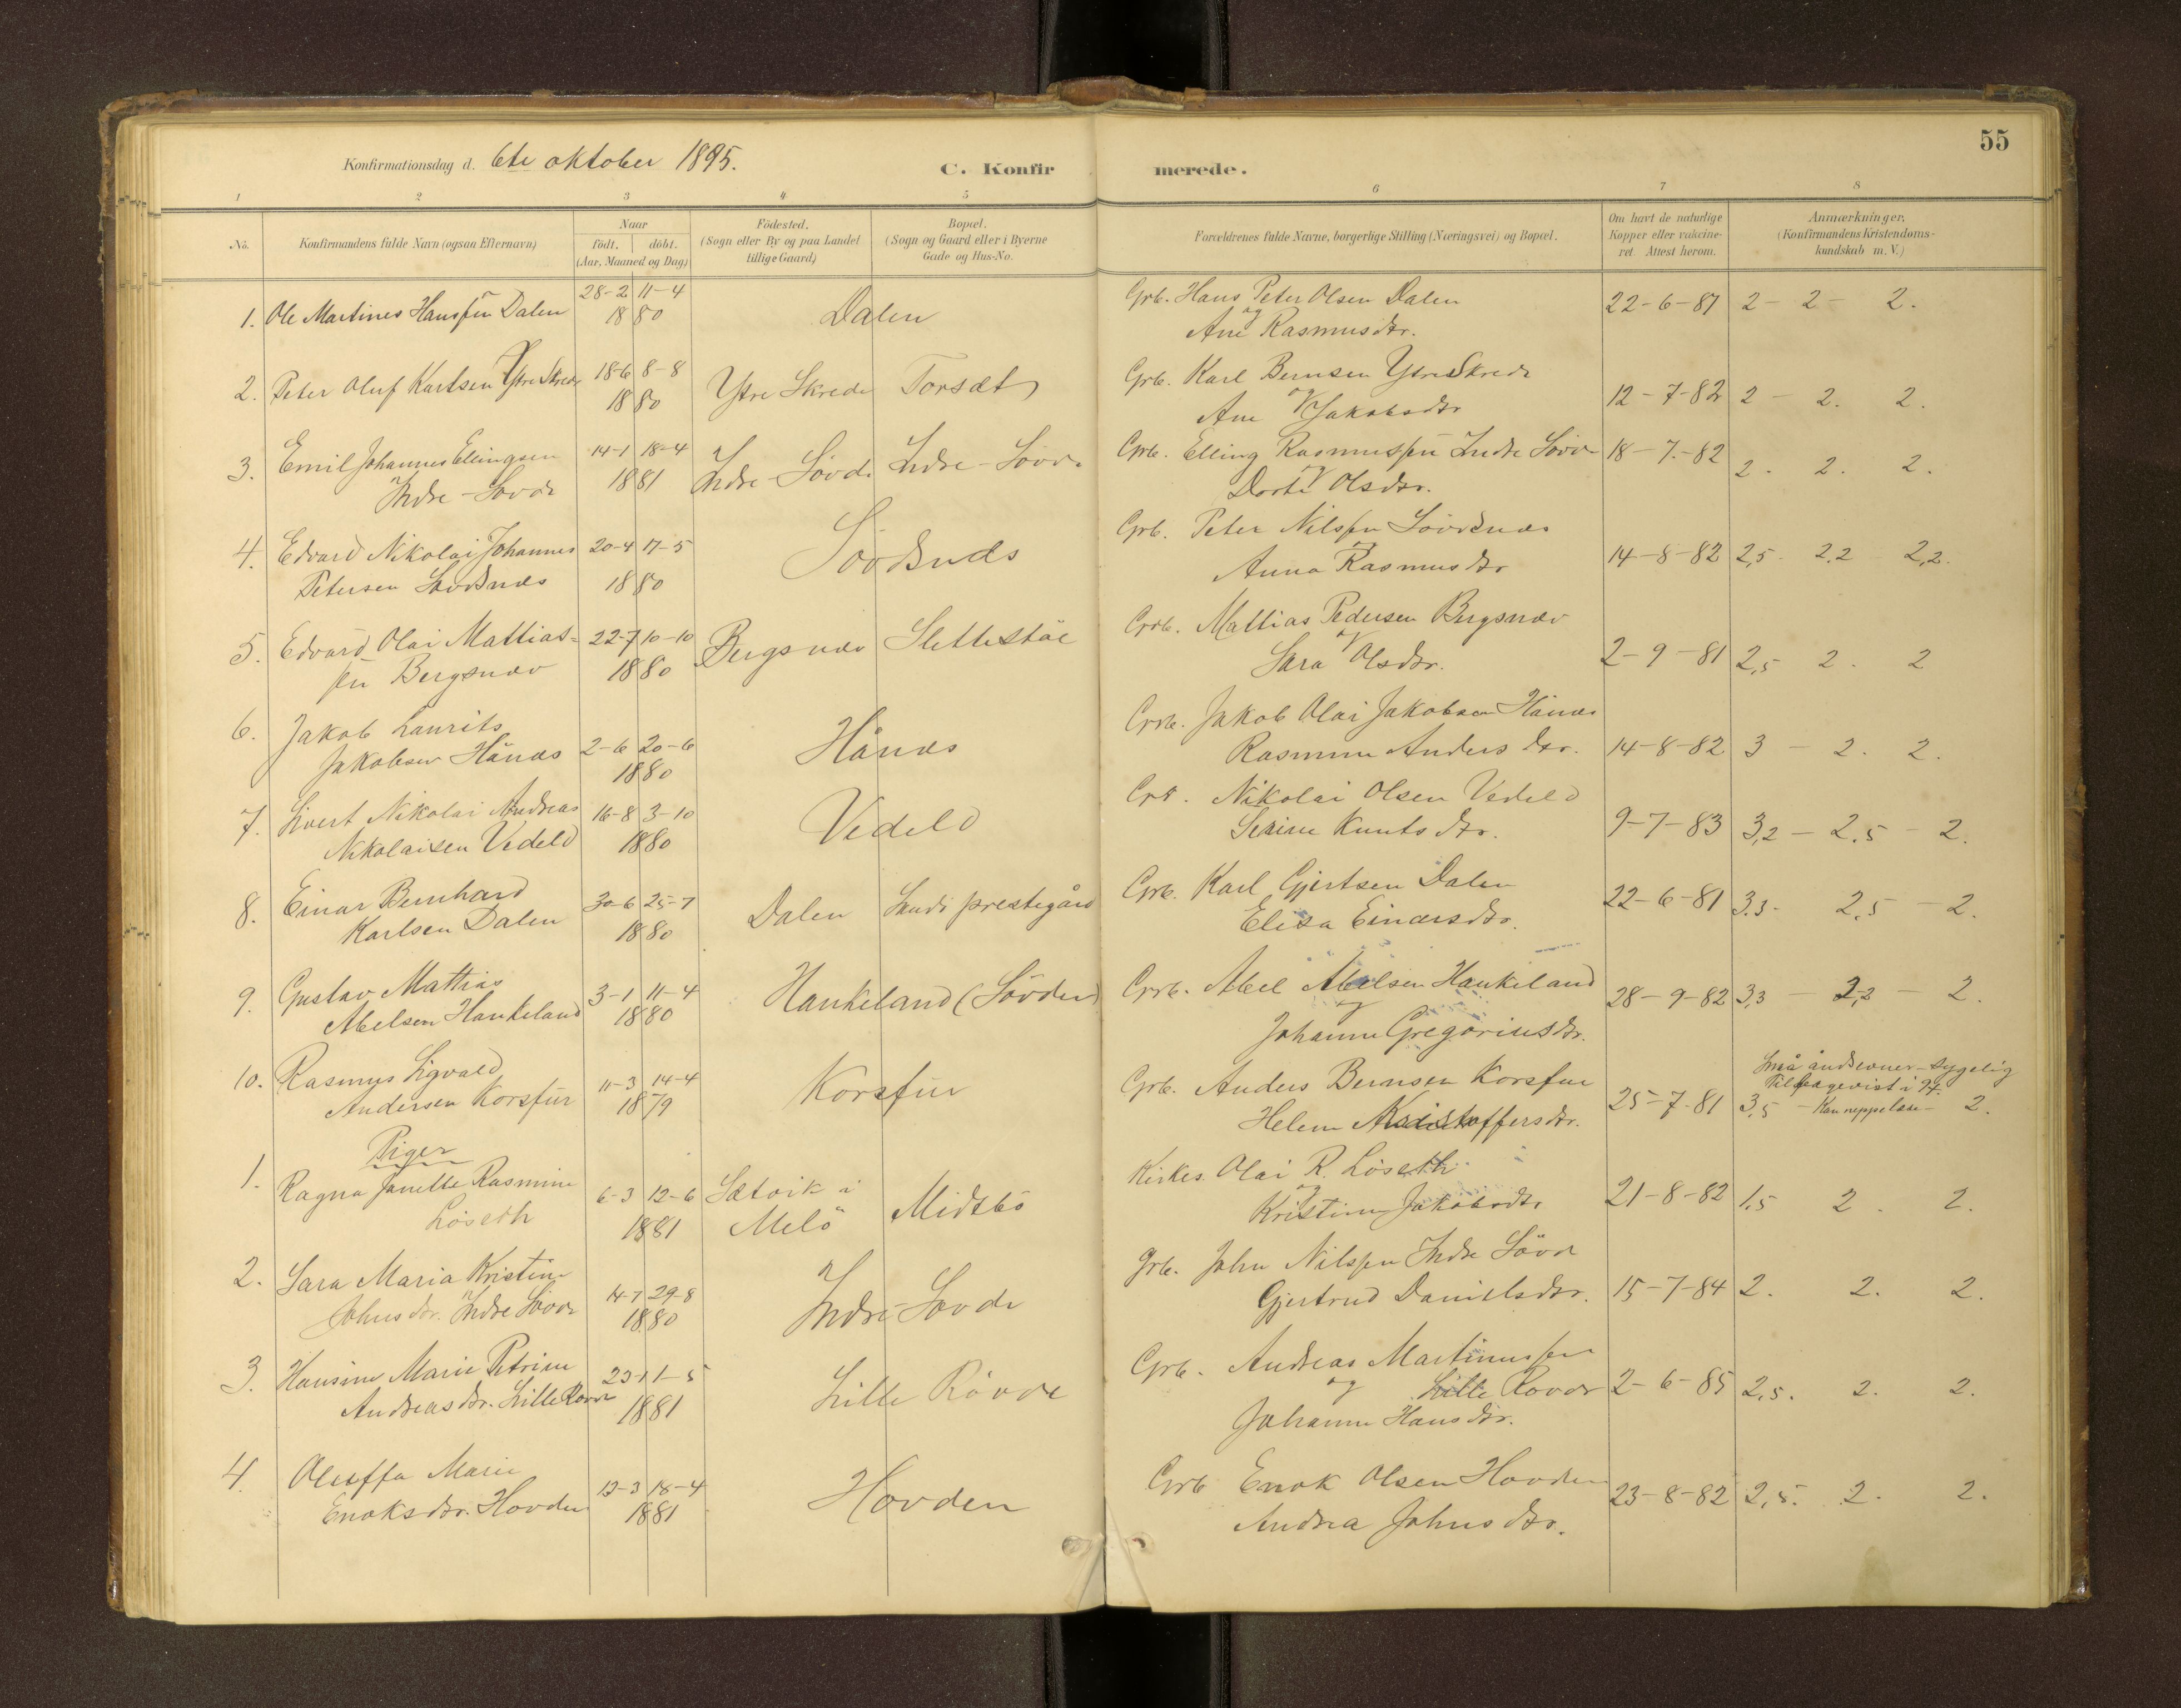 55
Konfirmationsdag d. 6te oktober 1895.
C. Konfirmerede.
1 2 3 4 5 6 7 8
No. Konfirmandens fulde Navn (ogsaa Efternavn) Naar födt. döbt. (Aar, Maaned og Dag) Födested. (Sogn eller By og paa Landet tillige Gaard) Bopæl. (Sogn og Gaard eller i Byerne Gade og Hus-No. Forældrenes fulde Navne, borgerlige Stilling (Næringsvei) og Bopæl. Om havt de naturlige Kopper eller vakcineret. Attest herom. Anmærkninger. (Konfirmandens Kristendomskundskab m. V.)
1. Ole Martines Hansen Dalen 28-2 11-4 1880 Dalen Grb. Hans Peter Olsen Dalen
og Ane Rasmusdtr. 22-6-87 2 - 2 - 2.
2. Peter Oluf Karlsen Ytre Skrede 18-6 8-8 1880 Ytre Skrede Torsæt Grb. Karl Bernsen Ytre Skrede
og Ane Jakobsdtr 12-7-82 2 - 2. 2.
3. Emil Johannes Ellingsen 14-1 18-4 Indre-Sövde Indre-Sövde Grb. Elling Rasmussen Indre Sövde 18-7-82
Indre-Sövde 1881 og Dorte Olsdtr. 2. 2. 2.
4. Edvard Nikolai Johannes 20-4 17-5 Sövdsnæs Grb. Peter Nilssen Sövdsnæs
Petersen Sövdsnæs 1880 og Anna Rasmusdtr 14-8-82 2,5 - 2,2 2,2.
5. Edvard Olai Mattias= 22-7 10-10 Bergsnæv Slettestöl Grb. Mattias Pedersen Bergsnæv
sen Bergsnæv 1880 og Sara Olsdtr. 2-9-81 2,5 2. 2
6. Jakob Laurits Grb. Jakob Olai Jakobsen Hånæs
Jakobsen Hånæs 2-6 20-6 1880 Hånæs Rasmine Andersdtr. 14-8-82 3 - 2. 2.
7. Sivert Nikolai Andreas 16-8 3-10 Vedeld Nikolai Olsen Vedeld
Nikolaisen Vedeld 1880 Serine Knutsdtr. 9-7-83 3,2 - 2,5 - 2.
8. Einar Bernhard 30-6 25-7 Dalen Sande prestegård Grb. Karl Gjertsen Dalen
Karlsen Dalen 1880 Elisa Einarsdtr. 22-6-81 3,3 - 2,5 - 2.
9. Gustav Mattias 3-1 11-4 Haukeland (Sövden) Grb. Abel Abelsen Haukeland
Abelsen Haukeland 1880 og Johanne Gregoriusdtr. 28-9-82 3,3 - 2,2 - 2.
10. Rasmus Sigvald 11-3 14-4 Korsfur Grb. Anders Bernsen Korsfur
Andersen Korsfur 1879 Helene Kristoffersdtr. 25-7-81 3,5 - Kan neppe læse - 2.
Små åndsevner - sygelig
Tilbagevist i 94.
Piger
1. Ragna Janette Rasmine 6-3 12-6 Sætvik i Midtbö Kirkes. Olai R. Löseth
Löseth 1881 Melö og Kristine Jakobsdtr 21-8-82 1,5 2. 2.
2. Sara Maria Kristine 14-7 29-8 Indre-Sövde Grb. John Nilssen Indre Sövde
Johnsdtr. Indre Sövde 1880 Gjertrud Danielsdtr. 15-7-84 2. 2. 2.
3. Hansine Marie Petrine 23-1 1-5 Lille Rövde Grb. Andreas Martinussen
Andreasdtr. Lille Rövde 1881 og Lille Rövde 2-6-85 2,5. 2. 2.
Johanne Hansdtr.
4. Oluffa Marie 13-3 18-4 Hovden Grb Enok Olsen Hovden
Enoksdtr. Hovden 1881 Andrea Johnsdtr. 23-8-82 2,5. 2. 2.